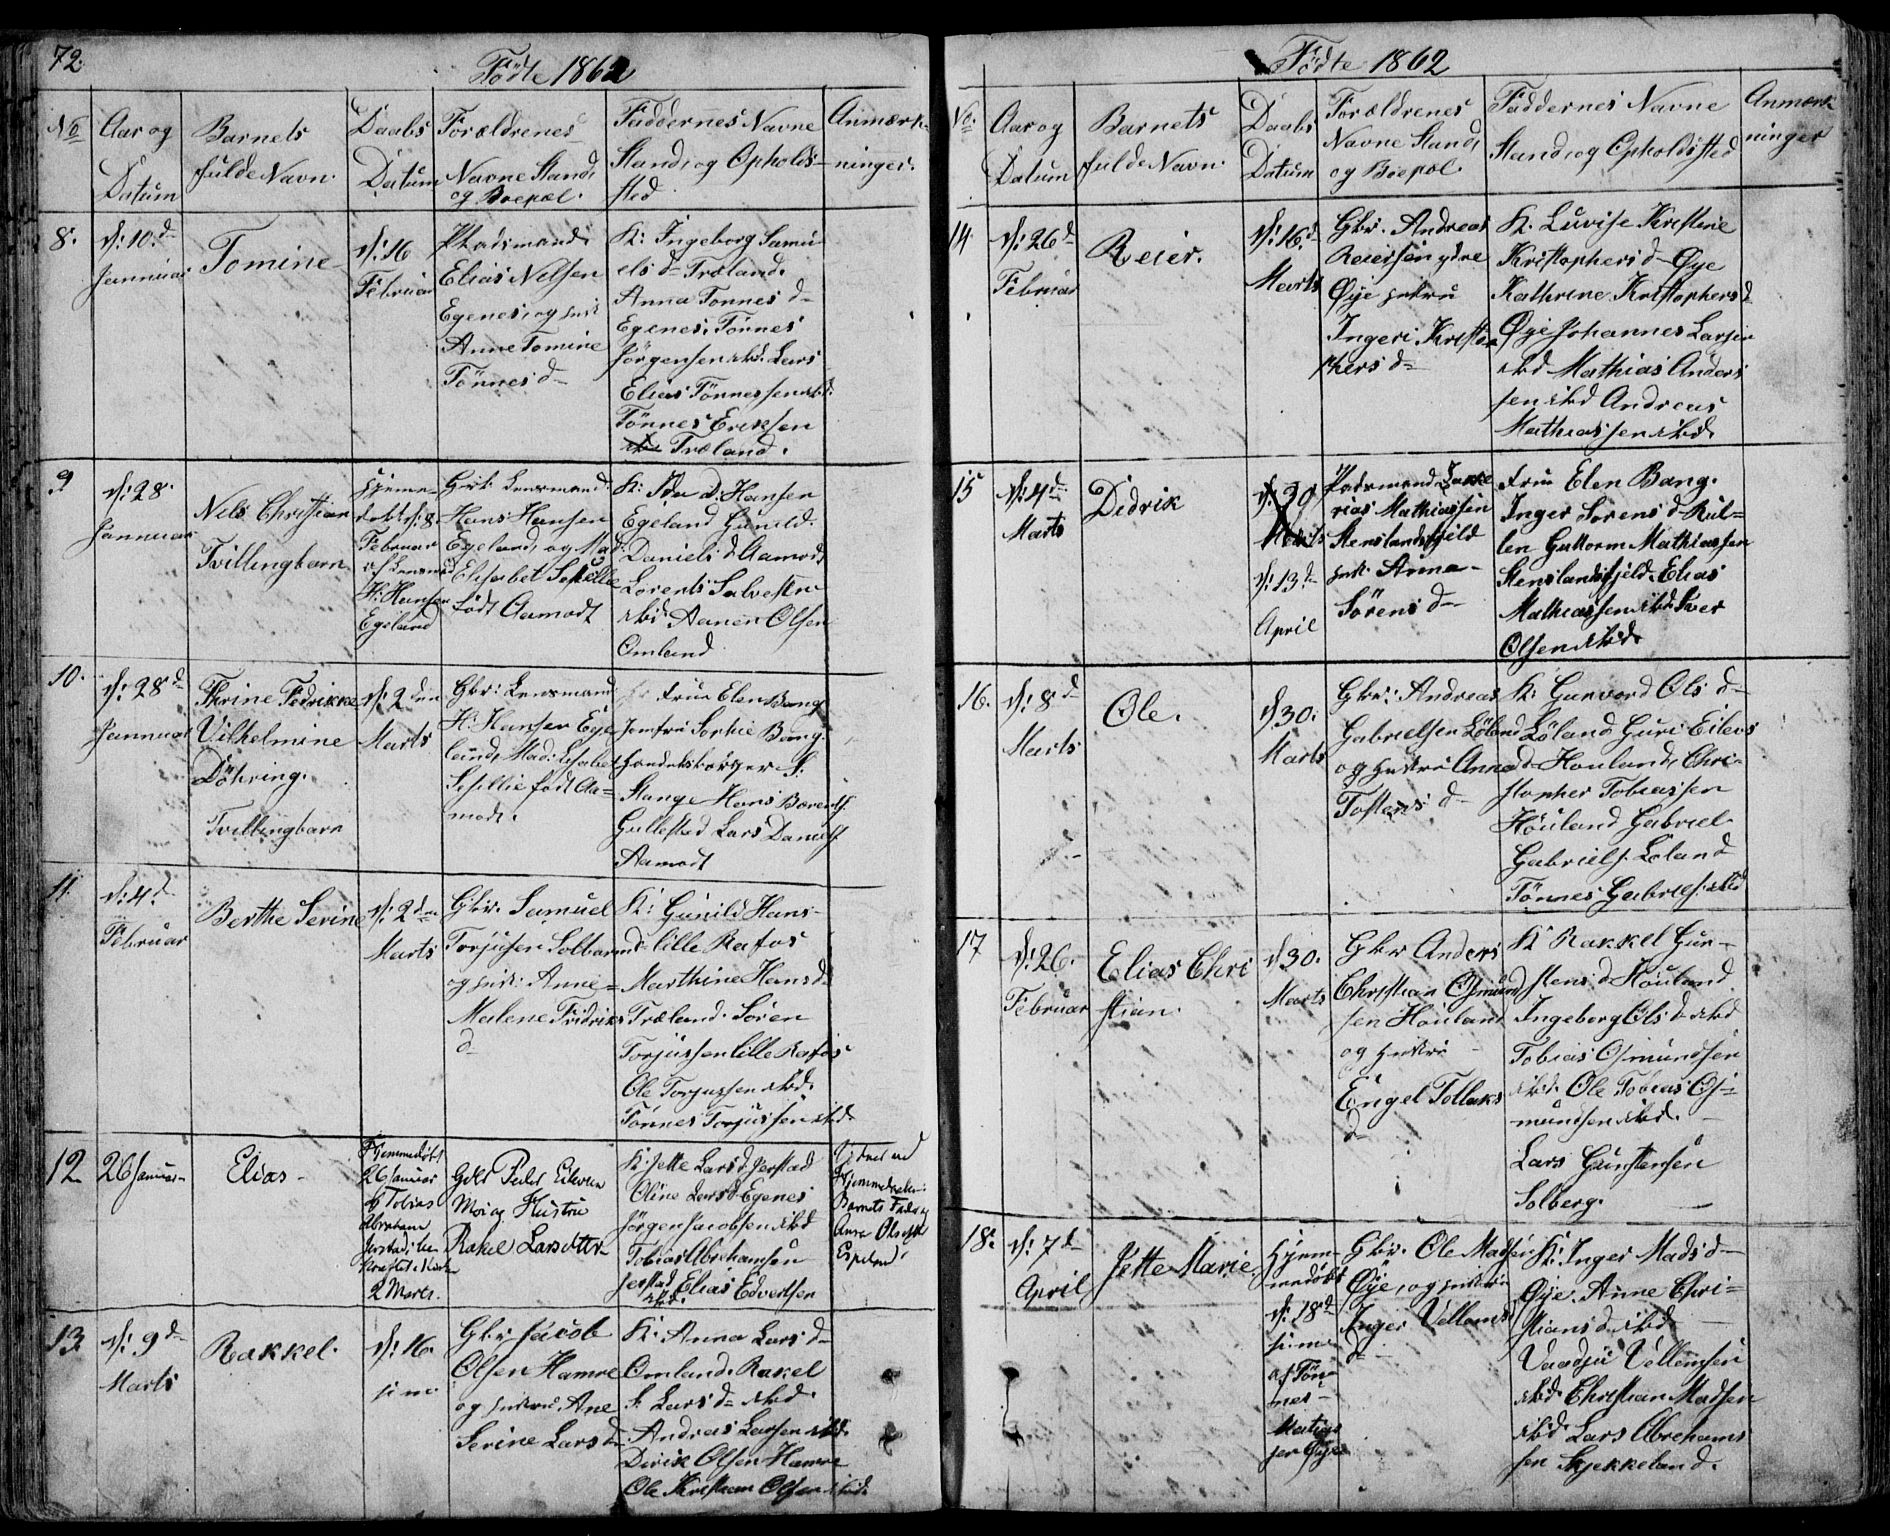 72.
Fødte 1862
No
Aar og
Datum
Barnets
fulde Navn.
Daabs
Datum
Forældrenes
Navne Stand,
og Boepæl.
Faddernes Navne
Stand, og Opholds-
sted
Anmærk-
ninger.
8.
d: 10.d
Januar
Tomine
d: 16
Februar
Pladsmand
Elias Nelsen
Egenes, og hust
Anne Tomine
Tønnes d-
K: Ingeborg Samu
els d- Træland.
Anna Tonnes d-
Egenes. Tønnes
Jørgensen ibd. Lars
Elias Tønnessen ibd.
Tønnes Eriksen
Træland.
9
d: 28.
Januar
Nels Christian
Tvillingbarn
Hjeme-
døbt d: 8
Februar
af Lensmd
H: Hansen
Egeland
Gbr. Lensmand
Hans Hansen
Egeland, og Mad:
Elisabet Sesille
født Aamodt
K: Ida d. Hansen
Egeland Gunild
Daniels d Aamodt
Lorents Salvesen
ibd Aanen Olsen
Omland
10.
d: 28 d-
Januar
Thrine Fedrikke
Vilhelmine
Döhring.
Tvillingbarn
d: 2 den
Marts
Gbr: Lensmand
H: Hansen Ege
land, Mad: Lisabet
Sesillie født Aa=
modt.
Frue Elen Bang
Jomfru Sophie Bang.
Handelsborger S.
Stange Hans Barents.
Gullestad Lars Daniels
Aamodt
11.
d: 4.d
Februar
Berthe Serine
d: 2 den
Marts
Gbr. Samuel
Torjusen Solbar
og hust: Anne=
Malene Fridriks
d-
K: Gunild Hans-
d- lille Rafos
Marthine Hans d-
Træland. Sören
Torjussen lille Rafos
Ole Torjussen ibd.
Tønnes Torjussen ibd.
12
26 Januar
Elias-
Hjemmedøbt
26 Januar
af Tobias
Abraham
Jerstad; i Kirken
2 Marts.
Gbr Peder Eilersen
Moi og Hustru
Rakel Larsdatter
K: Jette Lars d. Jerstad
Oline Lars d- Egenes
Jørgen Jacobsen ibd
Tobias Abrahamsen
Jerstad Elias Edvertsen
ibd.
Vidner ved
Hjemmedaaben:
Barnets Fader og
Anna Olsdtr
Espeland.
13
d: 9 d-
Marts
Rakkel.
d: 16.
s: m:
Gbr Jacob
Olsen Hamre
og hustru, Ane
Serine Lars d-
K: Anna Lars d-
Omland. Rakel
S. Lars d- ibd.
Andreas Larsen ibd.
Dirik Olsen Hamre
Ole Kristian Olsen ibid.
Fødte 1862
No.
Aar og
Datum
Barnets
fulde Navn.
Daabs
Datum
Forældrenes
Navne Stand,
og Boepæl.
Faddernes Navne
Stand, og Opholdssted
Anmærk
ninger
14
d: 26 d-
Februar
Reier.
d: 16.d
Marts
Gbr. Andreas
Reiersen ydre
Øye hustru
Ingeri Kristo
phers d-
K. Luvise Kristine
Kristophers d- Øye
Kathrine Kristophers d-
Øye Johannes Larsen
ibd Mathias Anders
sen ibd Andreas
Mathiassen ibd.
15
d: 4 d-
Marts
Didrik
d: 30
Marts
d: 13 d-
April
Pladsmand Zakke
rias Mathiassen
Stenslandsfjeld
hust. Anna
Sörens d-
Frue Elen Bang.
Inger Sörens d- Kul=
len Guttorm Mathiassen
Stenslandsfjeld. Elias
Mathiassen ibd Iver
Olsen ibd.
16.
d: 8 d-
Marts
Ole.
d 30.
Marts
Gbr: Andreas
Gabrielsen Löland
og hustru Anna
Tostens d-
K: Gunvord Ols d-
Löland Guri Eilevs
d- Houland, Chri-
stopher Tobiassen
Houland Gabriel
Gabriels. Loland
Tønnes Gabriels. ibd
17
d: 26.
Februar
Elias Chri
stian.
d 30.
Marts
Gbr Anders
Christian Osmund
sen Houland
og hustru
Engel Tollaks
d-
K: Rakkel Gun-
stens d Houland
Ingeborg Ols d- ibd
Tobias Osmundsen
ibd. Ole Tobias Os=
mundsen ibd.
Lars Gunstensen
Solberg.
18.
d: 7 d-
April
Jette Marie
Hjem-
medøbt
d: 18 d-
s: m:
af Tøn
nes
Matias
sen Øye
Gbr. Ole Madsen
Øye, og hustru
Inger Vellems
d-
K: Inger Mads d-
Øye. Anne Chri=
stians d- ibd
Vaadju Vellemsen
ibd Christian Madsen
ibd Lars Abrehams
sen Skjekkeland.